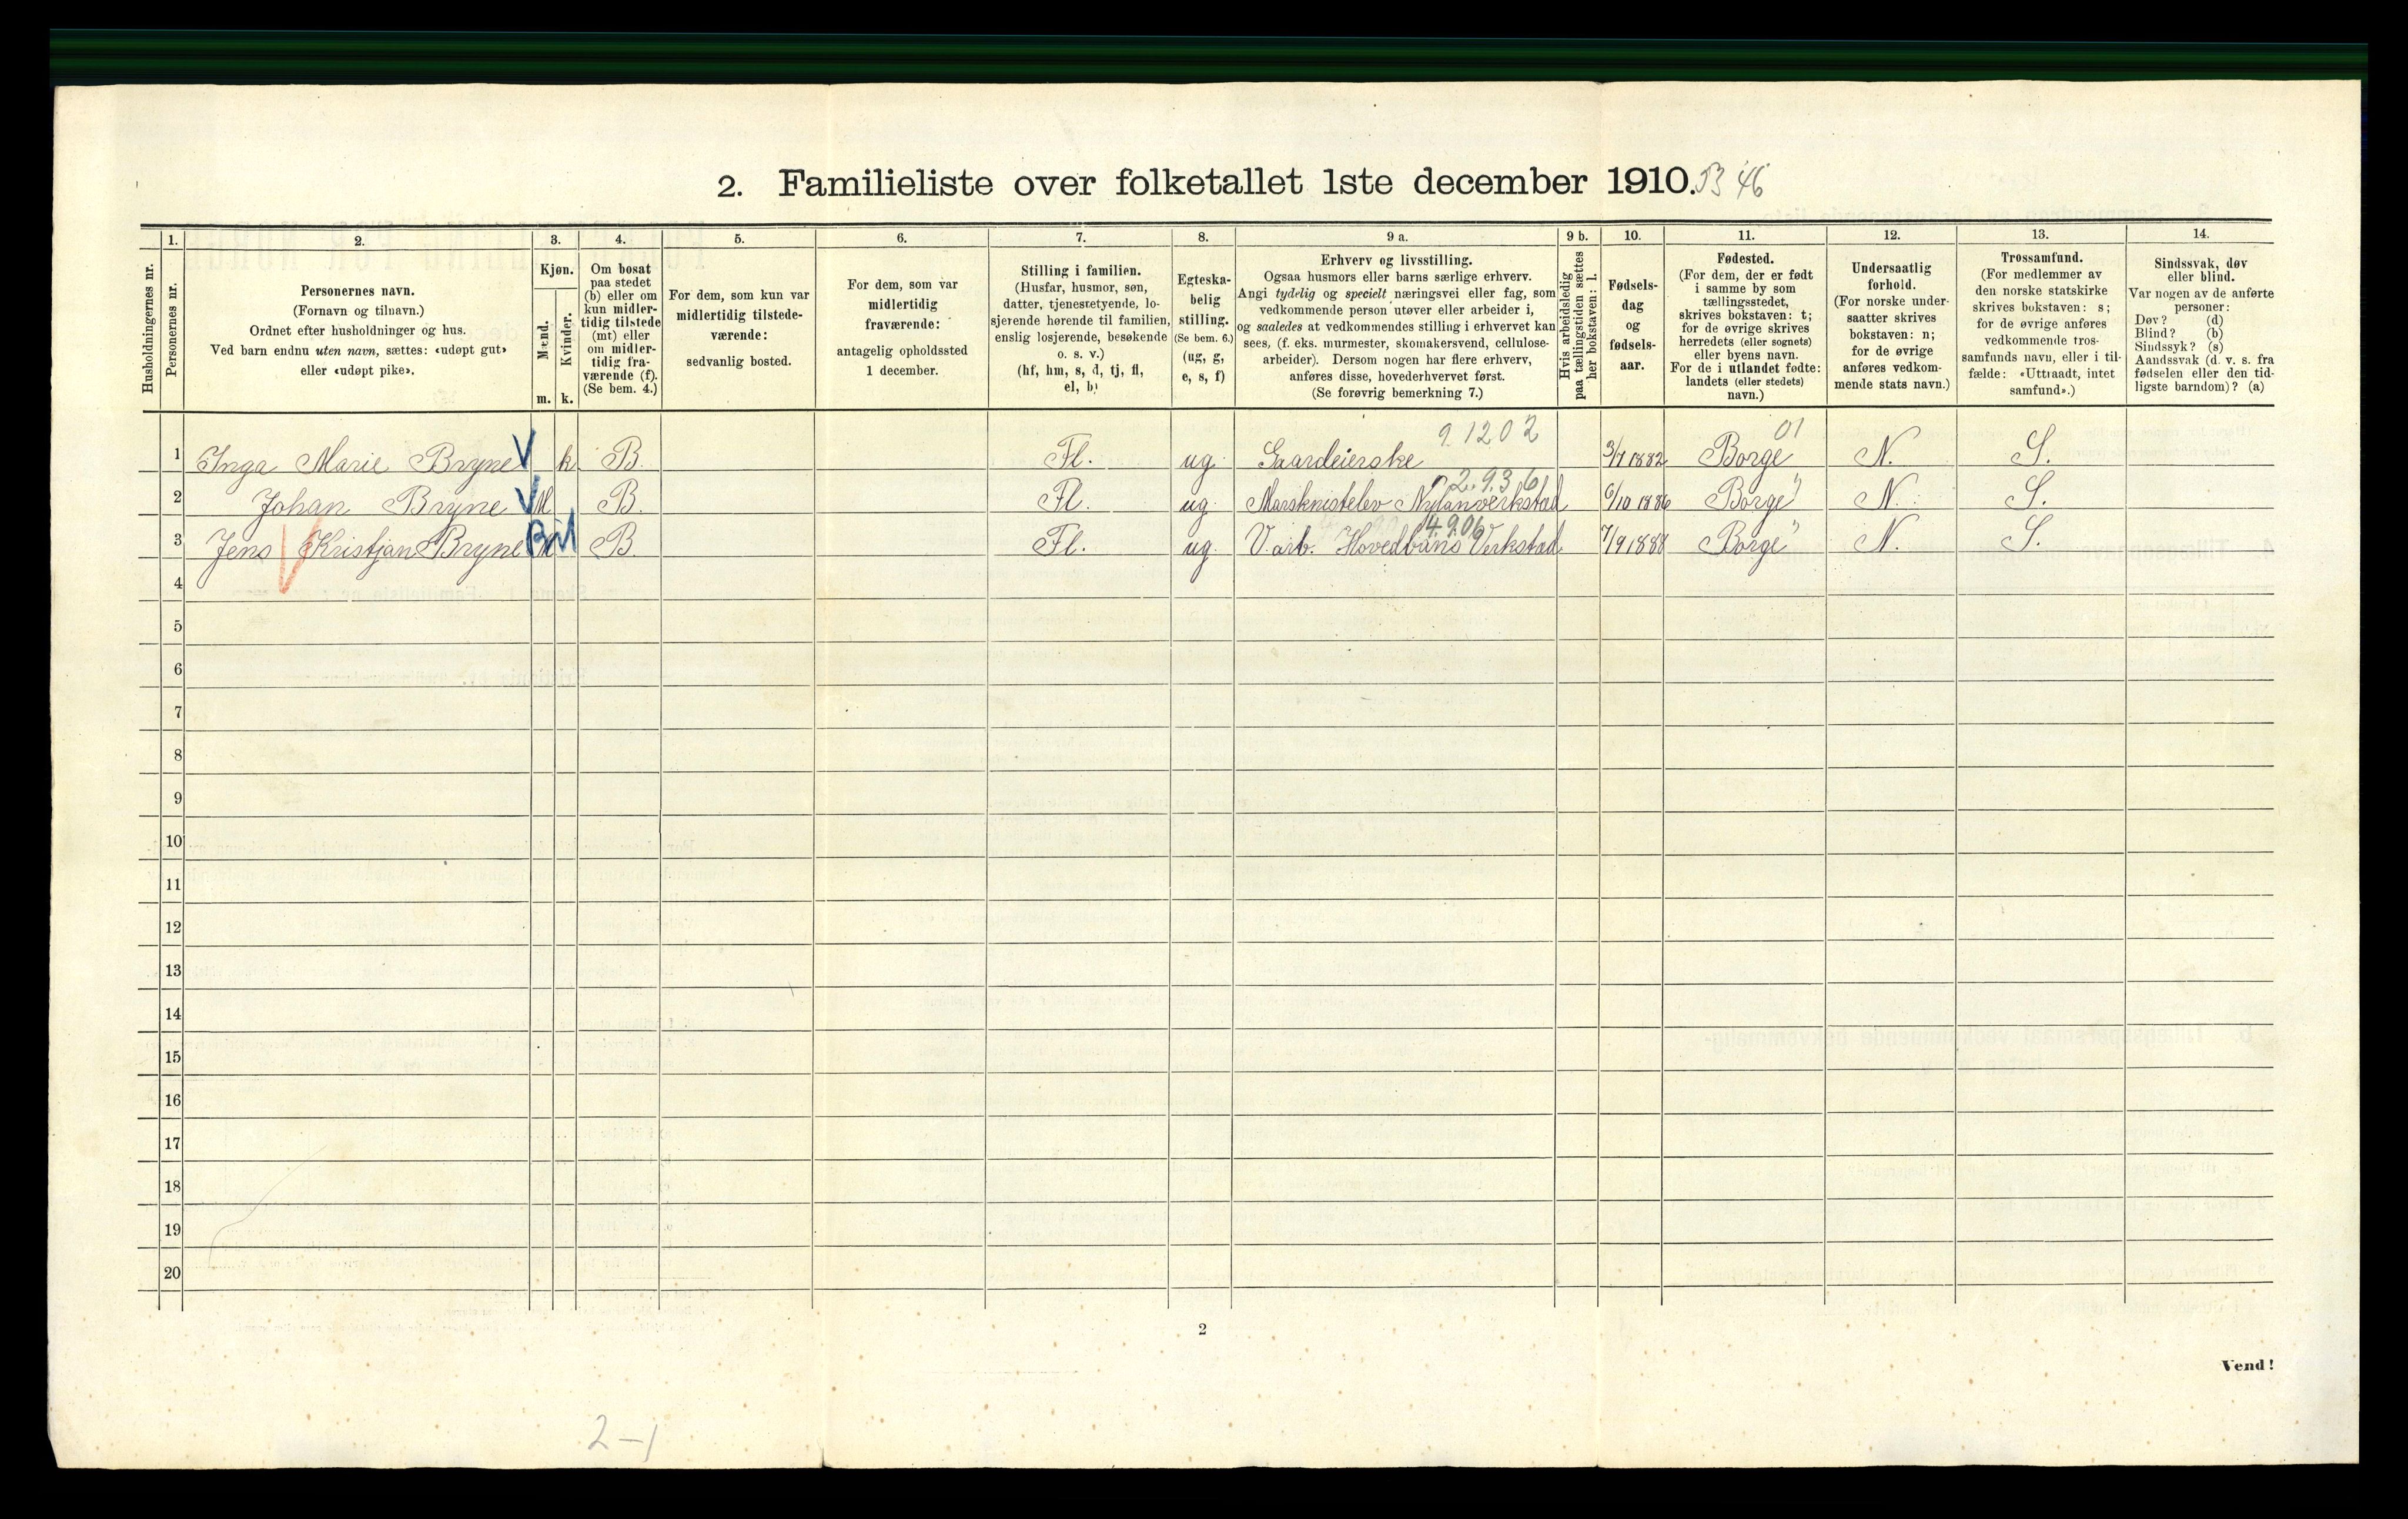 2. Familieliste over folketallet 1ste december 1910. 53 46
Husholdningernes nr.
1.
Personernes nr.
2.
Personernes navn.
(Fornavn og tilnavn.)
Ordnet efter husholdninger og hus.
Ved barn endnu uten navn, sættes: «udøpt gut»
eller «udøpt pike».
3.
Kjøn.
Mænd.
Kvinder.
m. k.
4.
Om bosat
paa stedet
(b) eller om
kun midler-
tidig tilstede
(mt) eller
om midler-
tidig fra-
værende (f).
(Se bem. 4.)
5.
For dem, som kun var
midlertidig tilstede-
værende:
sedvanlig bosted.
6.
For dem, som var
midlertidig
fraværende:
antagelig opholdssted
1 december.
7.
Stilling i familien.
(Husfar, husmor, søn,
datter, tjenestetyende, lo-
sjerende hørende til familien,
enslig losjerende, besøkende
o. s. v.)
(hf, hm, s, d, tj, fl,
el, b)
8.
Egteska-
belig
stilling.
(Se bem. 6.)
(ug, g,
e, s, f)
9 a.
Erhverv og livsstilling.
Ogsaa husmors eller barns særlige erhverv.
Angi tydelig og specielt næringsvei eller fag, som
vedkommende person utøver eller arbeider i,
og saaledes at vedkommendes stilling i erhvervet kan
sees, (f. eks. murmester, skomakersvend, cellulose-
arbeider). Dersom nogen har flere erhverv,
anføres disse, hovederhvervet først.
(Se forøvrig bemerkning 7.)
9 b.
Hvis arbeidsledig
paa tællingstiden sættes
her bokstaven: l.
10.
Fødsels-
dag
og
fødsels-
aar.
11.
Fødested.
(For dem, der er født
i samme by som
tællingsstedet,
skrives bokstaven: t;
for de øvrige skrives
herredets (eller sognets)
eller byens navn.
For de i utlandet fødte:
landets (eller stedets)
navn.)
12.
Undersaatlig
forhold.
(For norske under-
saatter skrives
bokstaven: n;
for de øvrige
anføres vedkom-
mende stats navn.)
13.
Trossamfund.
(For medlemmer av
den norske statskirke
skrives bokstaven: s;
for de øvrige anføres
vedkommende tros-
samfunds navn, eller i til-
fælde: «Uttraadt, intet
samfund».)
14.
Sindssvak, døv
eller blind.
Var nogen av de anførte
personer:
Døv? (d)
Blind? (b)
Sindssyk? (s)
Aandssvak (d. v. s. fra
fødselen eller den tid-
ligste barndom)? (a)
9.1202 01
1 Inga Marie Bryne V k B. Fl. ug. Gaardeierske 3/7 1882 Borge N. S.
2.9.36
2 Johan Bryne V M B. Fl. ug. Marsknistelev Nylanverkstad 6/10 1886 Borge " N. S.
4.9.06
3 Jens Kristjan Bryne M B Fl. ug. V. arb. Hovedbans Verkstad 7/9 1888 Borge " N. S.
4
5
6
7
8
9
10
11
12
13
14
15
16
17
18
19
20
2
Vend!
2-1